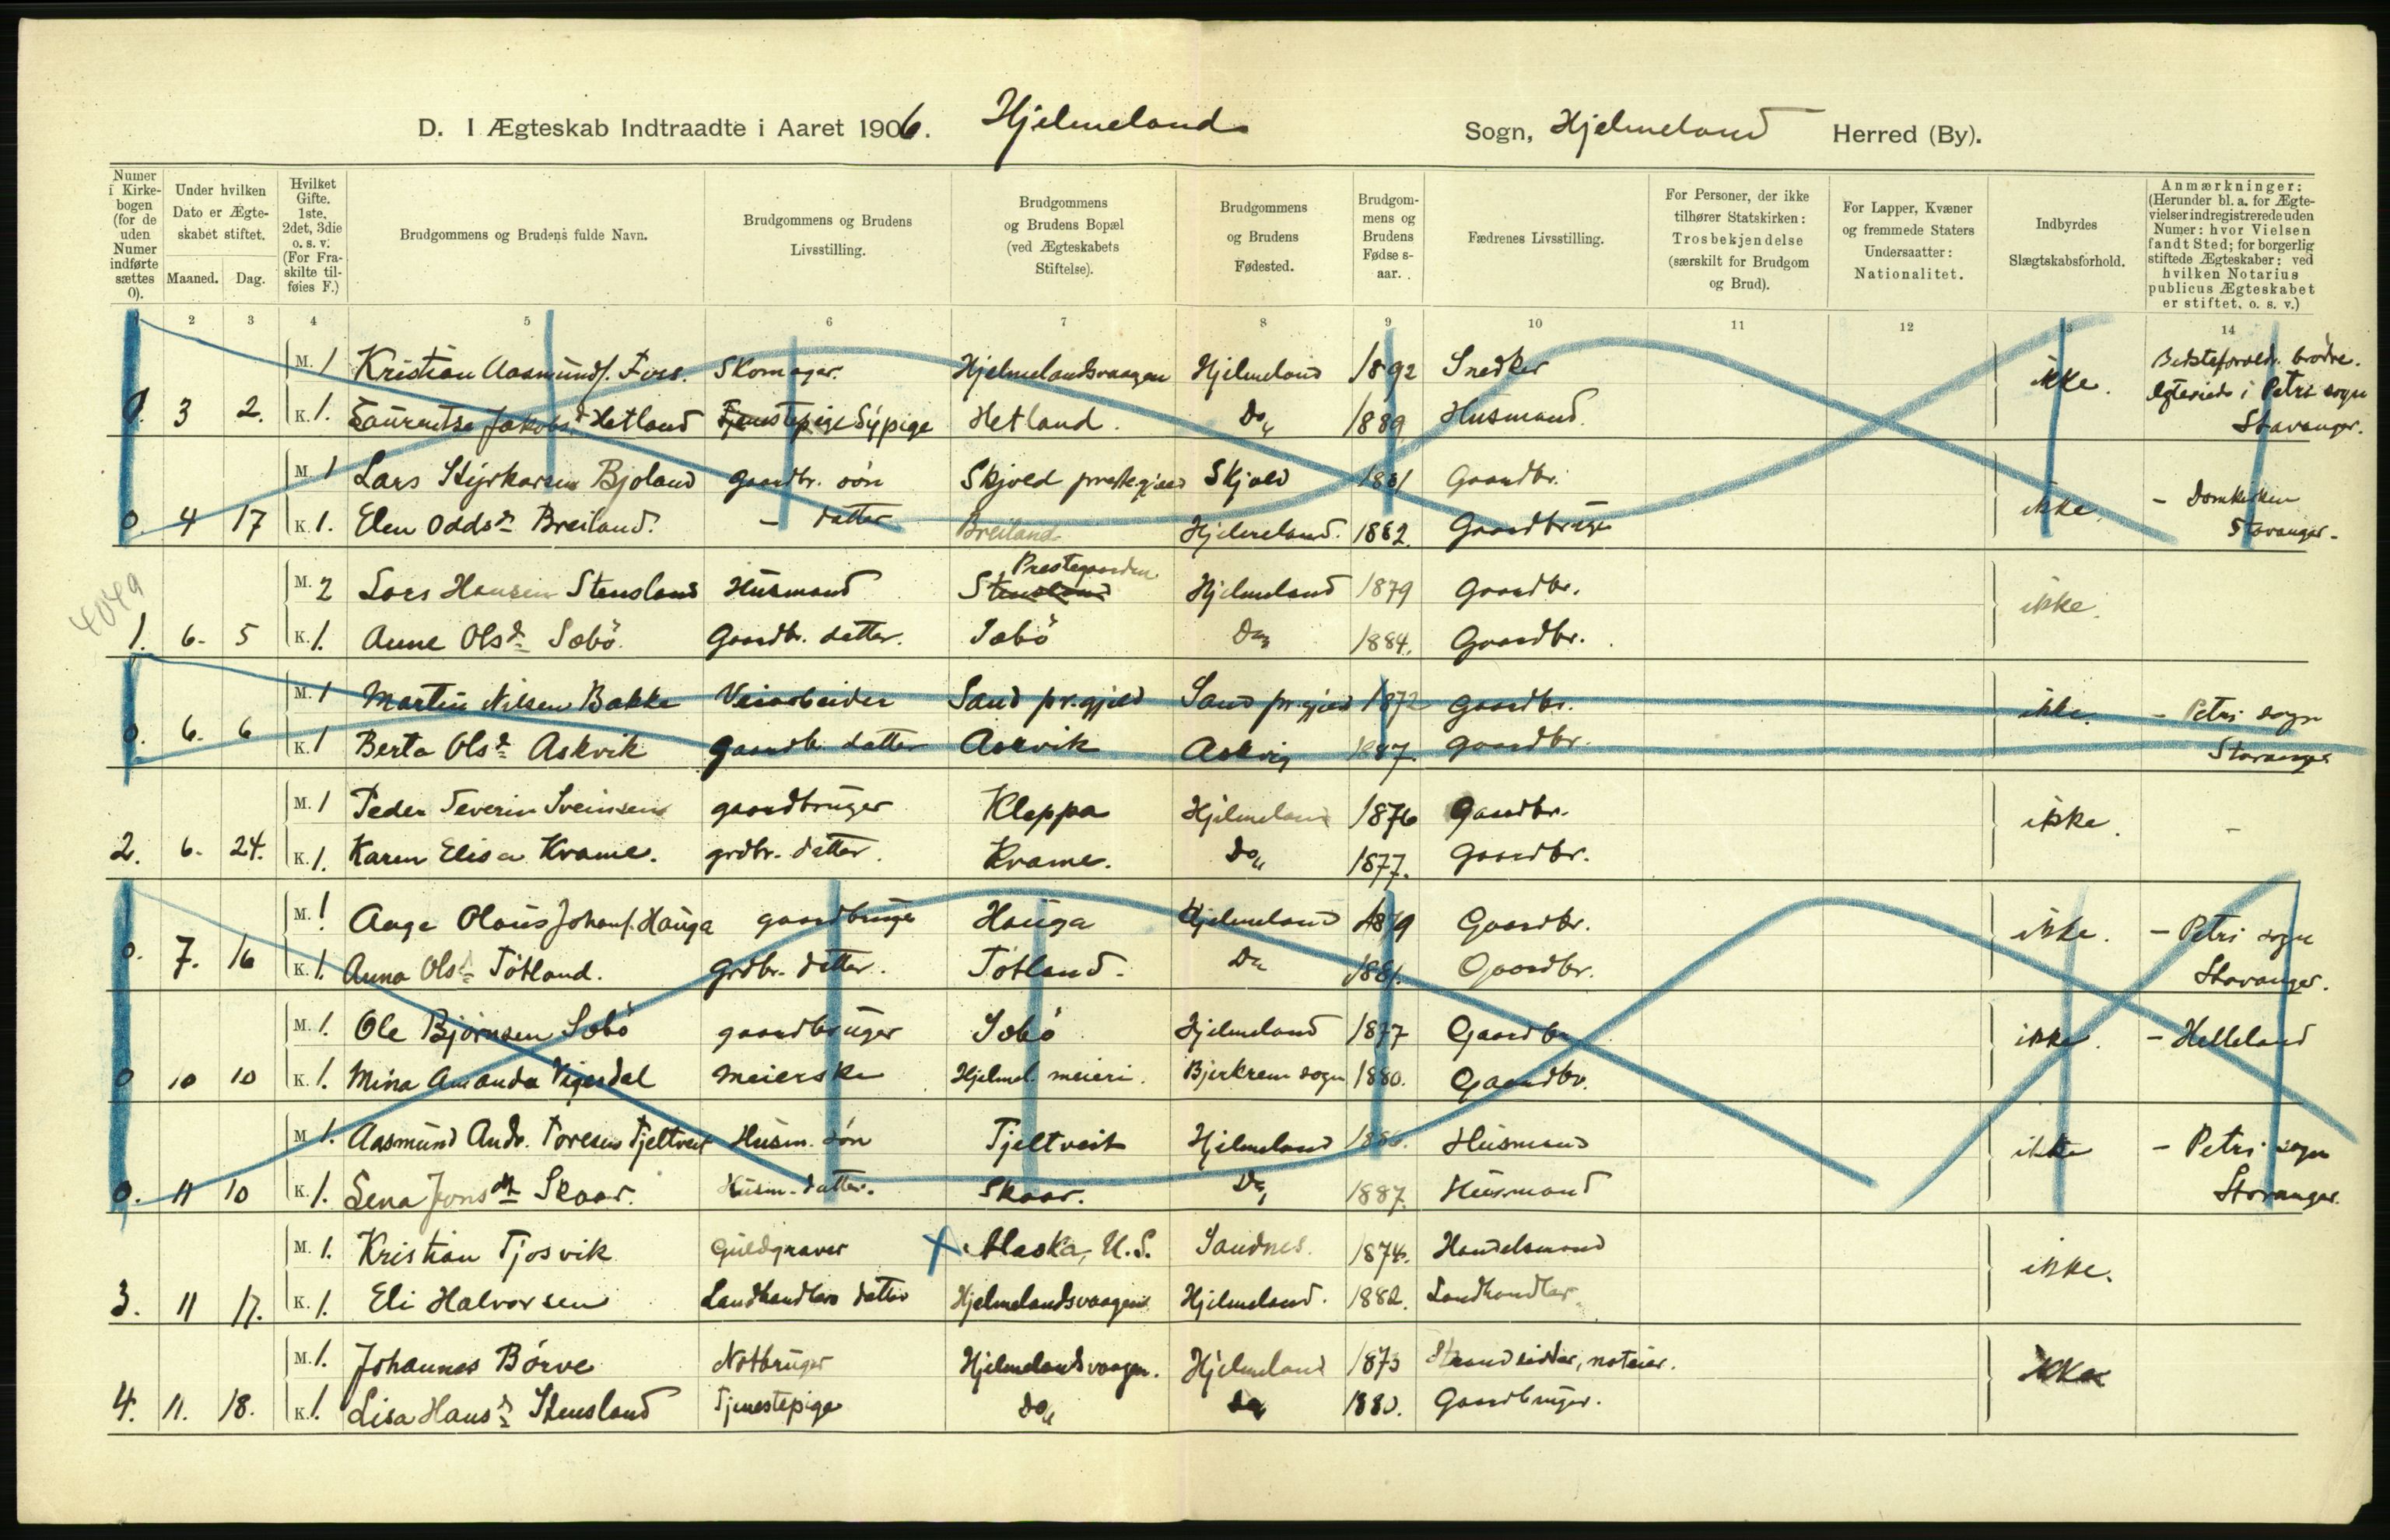 D. I Ægteskab Indtraadte i Aaret 1906. Hjelmeland Sogn, Hjelmeland Herred (By).
Numer i Kirkebogen (for de uden Numer indførte sættes 0).
Under hvilken Dato er Ægteskabet stiftet.
Maaned. Dag.
Hvilket Gifte. 1ste, 2det, 3die o. s. v. (For Fraskilte tilføies F.)
Brudgommens og Brudens fulde Navn.
Brudgommens og Brudens Livsstilling.
Brudgommens og Brudens Bopæl (ved Ægteskabets Stiftelse).
Brudgommens og Brudens Fødested.
Brudgommens og Brudens Fødse s-aar.
Fædrenes Livsstilling.
For Personer, der ikke tilhører Statskirken: Trosbekjendelse (særskilt for Brudgom og Brud).
For Lapper, Kvæner og fremmede Staters Undersaatter: Nationalitet.
Indbyrdes Slægtskabsforhold.
Anmærkninger: (Herunder bl. a. for Ægtevielser indregistrerede uden Numer: hvor Vielsen fandt Sted; for borgerlig stiftede Ægteskaber: ved hvilken Notarius publicus Ægteskabet er stiftet, o. s. v.)
2 3 4 5 6 7 8 9 10 11 12 13 14
M. 1 Kristian Aasmunds. Foss. Skomager. Hjelmelandsvaagen Hjelmeland 1892 Snedker ikke.
0. 3 2. K. 1. Lauritse Jakobsd. Hetland Tjenestepige Sÿpige Hetland. Do 1889 Husmand. i Petri sogn Stavanger.
M. 1 Lars Styrkarsen Bjoland Gaardbr. søn Skjold prestegjeld Skjold 1881 Gaardbr. ikke.
0. 4 17 K. 1. Elen Oddsd. Breiland. - datter Breiland Hjelmeland. 1882. Gaardbruger - Domkirken Stavanger.
4049
M. 2 Lars Hansen Stensland Husmand Stensland Prestegaarden Hjelmeland 1879 Gaardbr. ikke.
1. 6. 5 K. 1. Anne Olsd. Sæbö. Gaardbr. datter. Sæbö Do 1884. Gaardbr.
M. 1 Martin Nilsen Bakke Veiarbeider Sand pr.gjeld Sand pr.gjeld 1872 Gaardbr. ikke. - Petri sogn
0. 6. 6 K. 1 Berta Olsd. Askvik Gaardb. datter Askvik Askvig 1887. Gaardbr. Stavanger
M. 1 Peder Severin Sveinsen gaardbruger Kleppa Hjelmeland 1876 Gaardbr. ikke. -
2. 6. 24. K. 1. Karen Elisa Kvame. grdbr. datter. Kvame. Do 1877. Gaardbr.
M. 1 Aage Olaus Johans. Hauga gaardbruger Hauga Hjelmeland 1879 Gaardbr. ikke. - Petri sogn
0. 7. 16 K. 1. Anna Olsd. Tötland. Grdbr. datter. Tötland. Do 1881. Gaardbr. Stavanger.
M. 1. Ole Bjørnsen Sæbö gaardbruger Sæbö Hjelmeland 1877 Gaardbr. ikke. - Helleland
0 10 10 K. 1. Mina Amanda Vigesdal Meierske Hjelmel. meieri. Bjerkrem sogn 1880. Gaardbr.
M. 1. Aasmund Andr. Toresen Tjeltveit Husm. søn Tjeltveit Hjelmeland Husmand ikke - Petri sogn
0. 11 10 K. 1. Lena Jonsdtr Skaar. Husm. datter. Skaar. Do 1887. Husmand Stavanger.
M. 1. Kristian Tjosvik Guldgraver X Alaska, U.S. Sandnes. 1874. Handelsmand ikke.
3. 11 17. K. 1. Eli Halvorsen Landhandlers datter Hjelmelandsvaagen Hjelmeland. 1882. Landhandler.
M. 1. Johannes Börve Notbruger Hjelmelandsvaagen. Hjelmeland 1873 Strandsidder, noteier. ikke
4. 11. 18. K. 1. Lisa Hansd. Stensland Tjenestepige Do Do 1880. Gaardbruger.